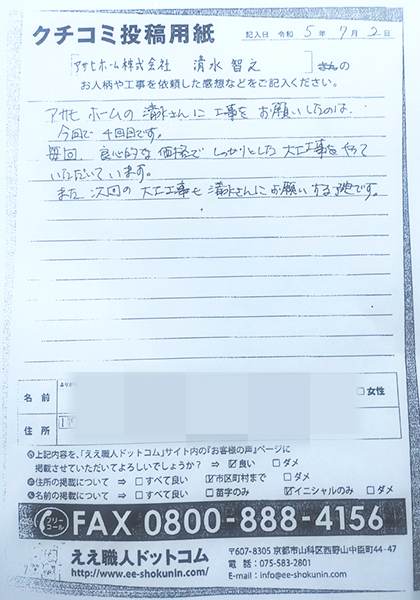 クチコミ投稿用紙
記入日 令和 5年 7月 2日
[アサヒホーム株式会社 清水 智之]さんの
お人柄や工事を依頼した感想などをご記入ください。
アサヒホームの清水さんに工事をお願いしたのは、
今回で4回目です。
毎回、良心的な価格でしっかりとした大工工事をやって
いただいています。
また次回の大工工事も清水さんにお願いする予定です。
名前
□女性
住所
上記内容を、「ええ職人ドットコム」サイト内の『お客様の声』ページに
掲載させていただいてよろしいでしょうか? ⇒ ☑良い □ダメ
住所の掲載について ⇒ □すべて良い ☑市区町村まで □ダメ
名前の掲載について ⇒ □すべて良い □苗字のみ ☑イニシャルのみ □ダメ
フリーコール FAX 0800-888-4156
ええ職人ドットコム
http://www.ee-shokunin.com
〒607-8305 京都市山科区西野山中臣町44-47
電話:075-583-2801
E-mail:info@ee-shokunin.com